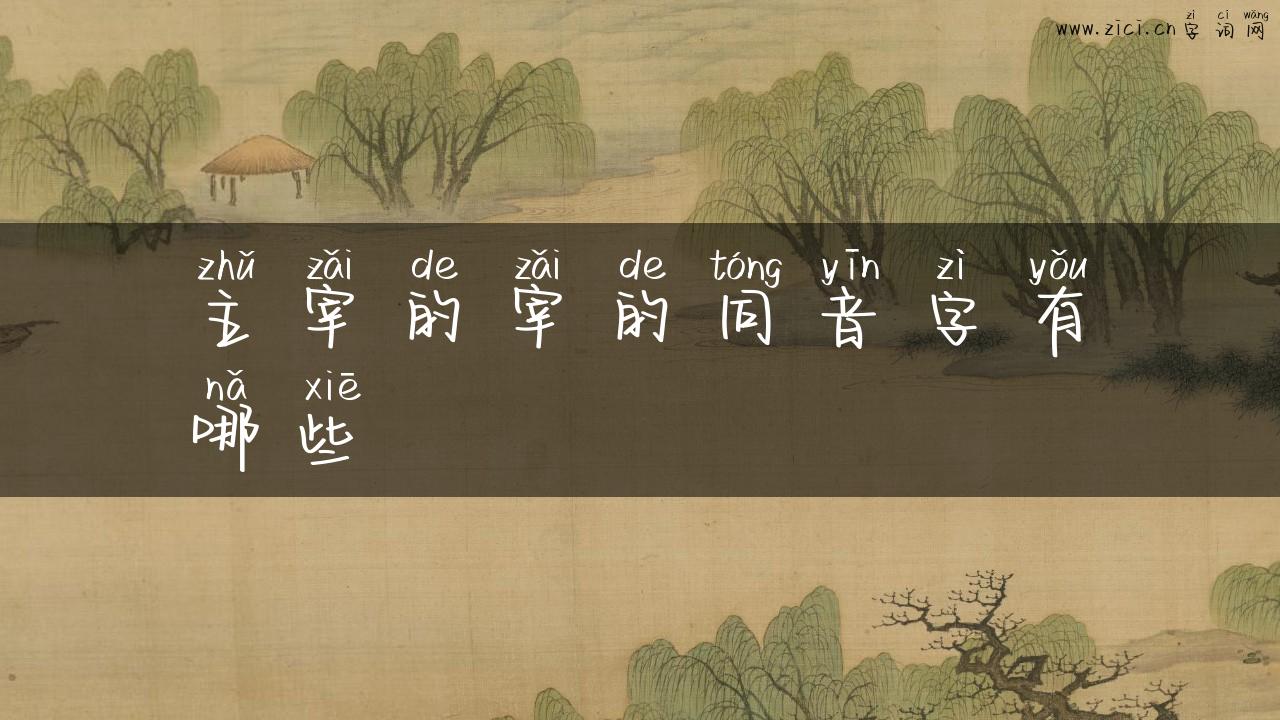 zì cí wǎng
www.zici.cn 字词网
zhǔ zǎi de zǎi de tóng yīn zì yǒu
主宰的宰的同音字有
nǎ xiē
哪些